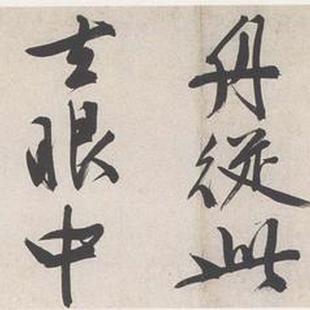 舟從此
去眼中